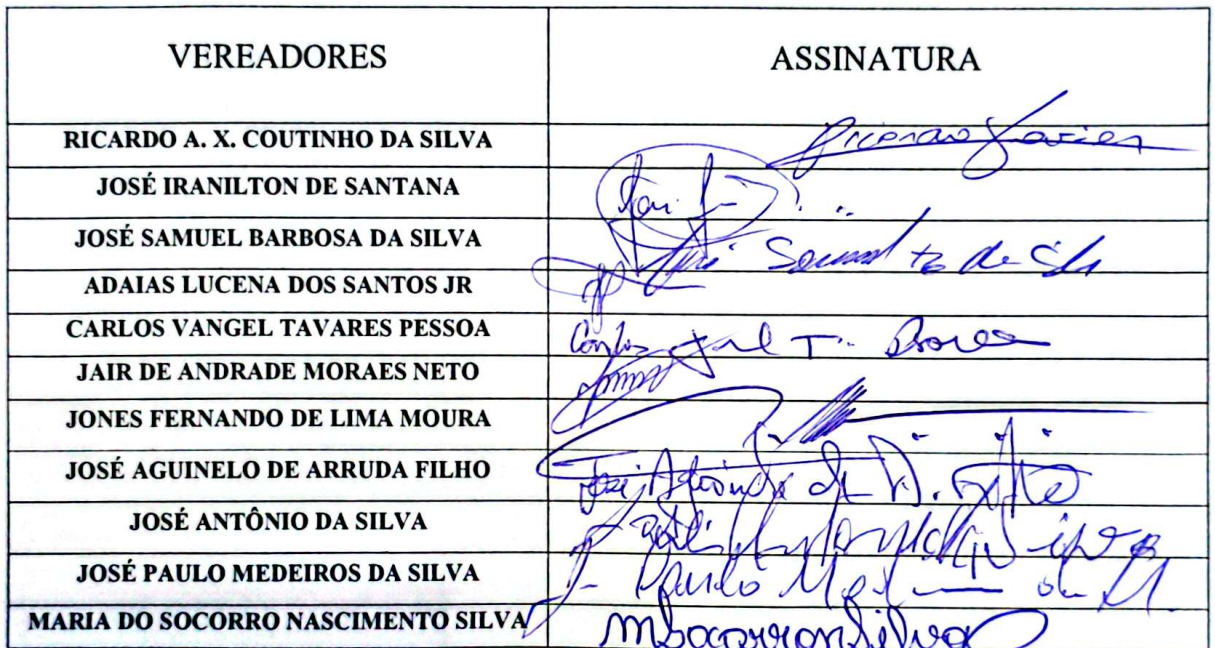 VEREADORES ASSINATURA
RICARDO A. X. COUTINHO DA SILVA Ricardo Xavier
JOSÉ IRANILTON DE SANTANA
JOSÉ SAMUEL BARBOSA DA SILVA José Samuel
ADAIAS LUCENA DOS SANTOS JR
CARLOS VANGEL TAVARES PESSOA Carlos T.
JAIR DE ANDRADE MORAES NETO
JONES FERNANDO DE LIMA MOURA
JOSÉ AGUINELO DE ARRUDA FILHO José
JOSÉ ANTÔNIO DA SILVA
JOSÉ PAULO MEDEIROS DA SILVA J. Paulo
MARIA DO SOCORRO NASCIMENTO SILVA MSocorronSilva